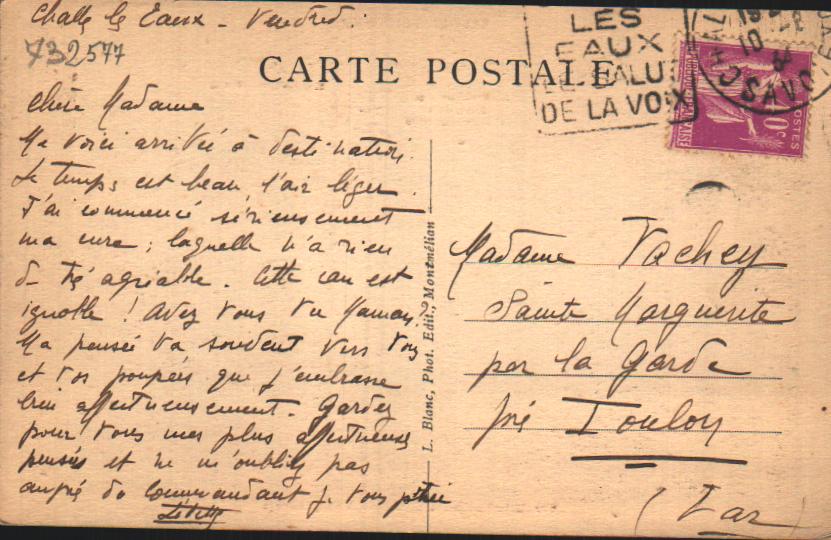 Challes les Eaux - Vendredi
732577
CARTE POSTALE
LES
EAUX
LE SALUT
DE LA VOIX
SAVOIE
POSTES
Chère Madame
Me voici arrivée à destination.
Le temps est beau l'air léger.
J'ai commencé sérieusement
ma cure ; laquelle n'a rien
de très agréable. Cette eau est
ignoble ! Avez vous vu Maman ?
Ma pensée va souvent vers vous
et vos poupées que j'embrasse
bien affectueusement. Gardez
pour vous mes plus affectueuses
pensées et ne m'oubliez pas
auprès du Commandant je vous prie
L. Blanc, Phot. Edit., Montmélian
Madame Vachey
Sainte Marguerite
par la Garde
près Toulon
(Var)